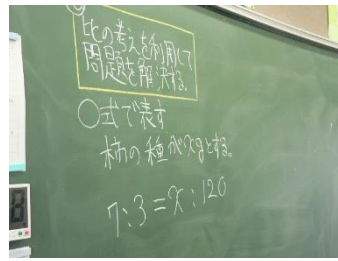 比の考えを利用して
問題を解決する。
○式で表す
柿の種がxgとする。
7:3=x:120